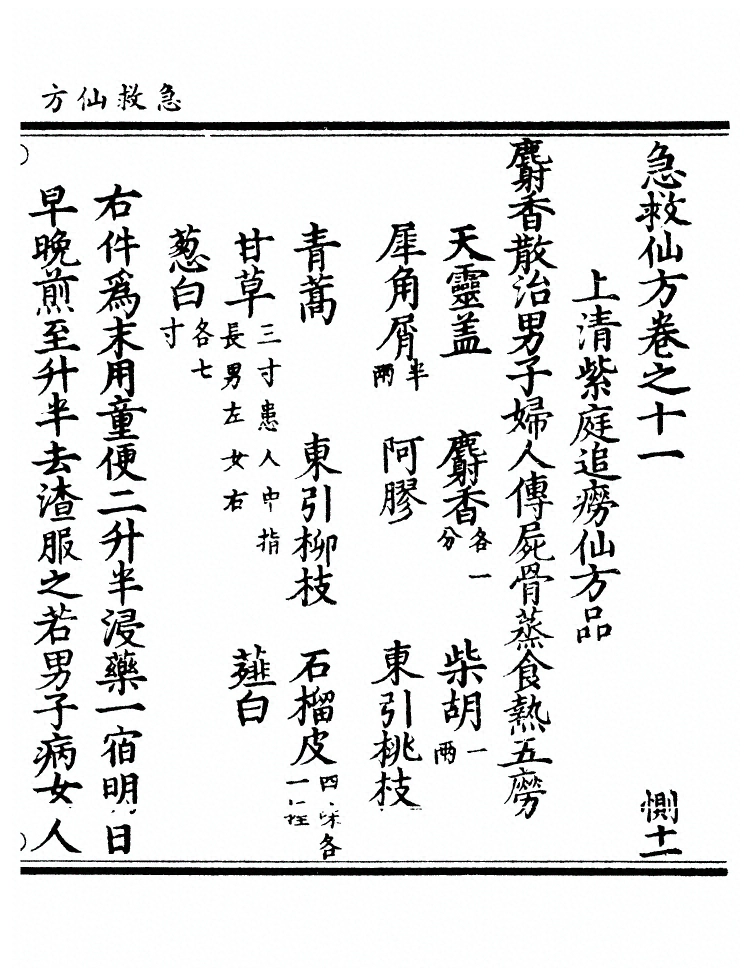 急救仙方
急救仙方卷之十一　惻十一
上清紫庭追癆仙方品
麝香散治男子婦人傳屍骨蒸食熱五癆
天靈盖　麝香各一分　柴胡一兩
犀角屑半兩　阿膠　東引桃枝
青蒿　東引柳枝　石榴皮四味各一
甘草三寸患人中指長男左女右　薤白
葱白各七寸
右件爲末用童便二升半浸藥一宿明日
早晚煎至升半去渣服之若男子病女人